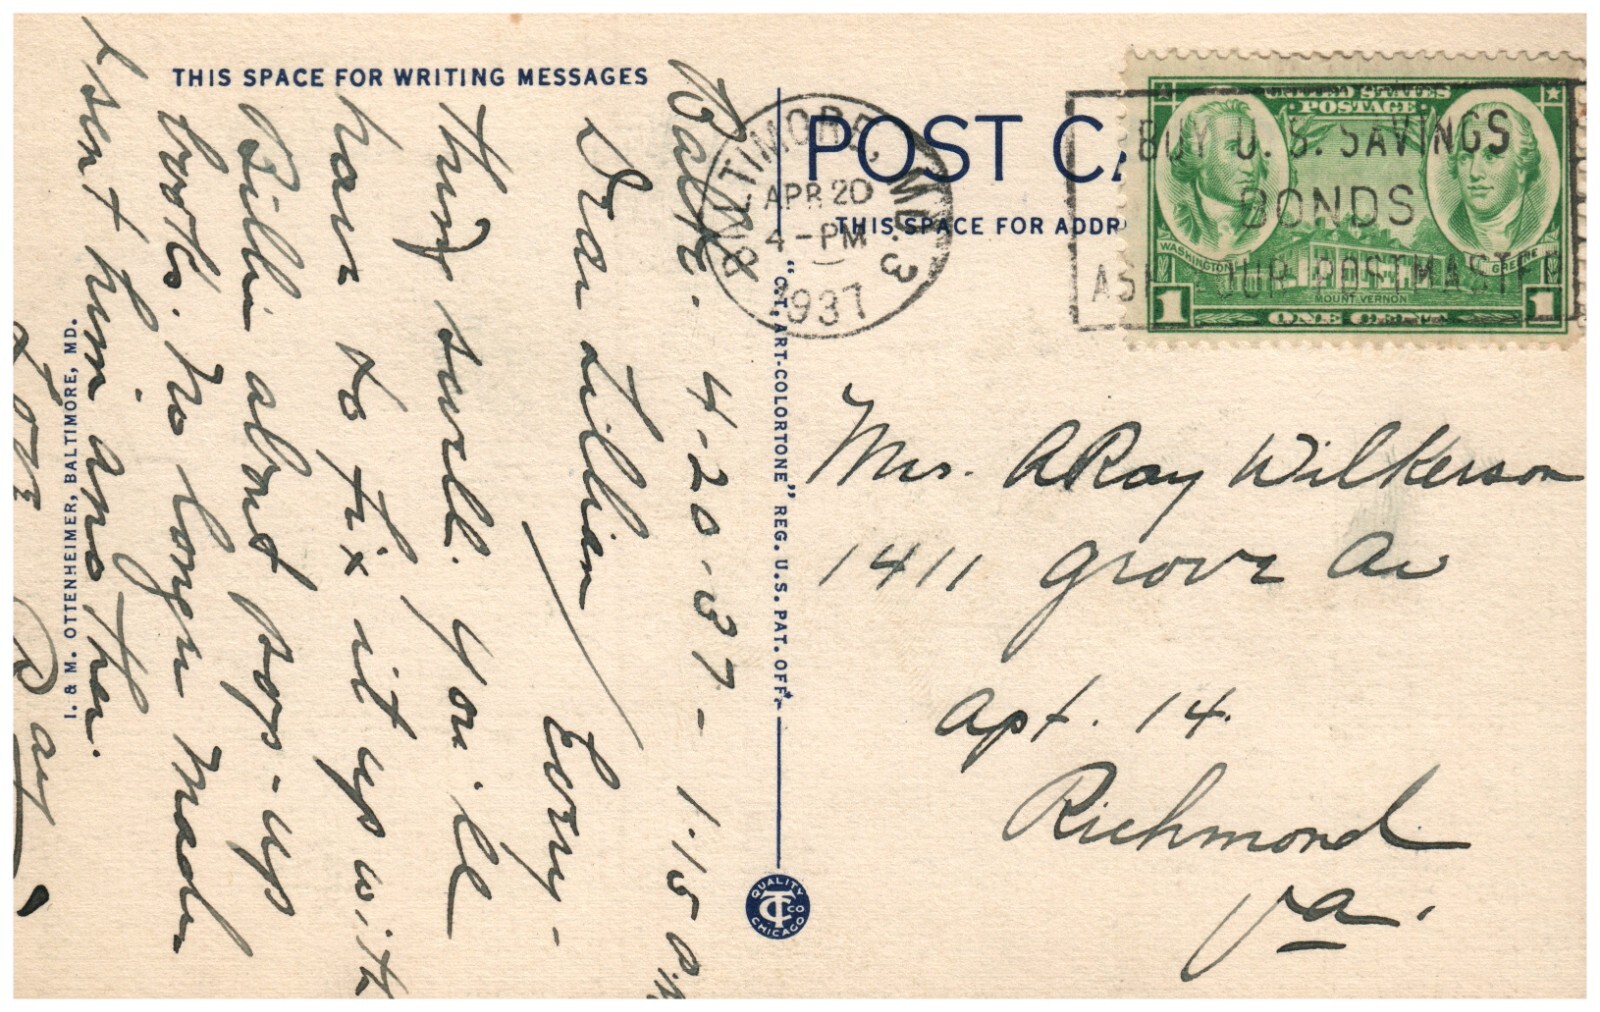 THIS SPACE FOR WRITING MESSAGES
Balto. 4-20-37- 1.15 P.M
Dear Lillian / Every-
thing swell. You'll
have to fix it up with
Billie about pop-ups
books. No longer made
I sent him another.
Love Ray
I. & M. OTTENHEIMER, BALTIMORE, MD.
"C.T. ART-COLORTONE" REG. U.S. PAT. OFF.
QUALITY
CT CO
CHICAGO
POST CA
THIS SPACE FOR ADDR
BALTIMORE, MD. 3
APR 20
4-PM
1937
BUY U. S. SAVINGS
BONDS
ASK YOUR POSTMASTER
UNITED STATES
POSTAGE
WASHINGTON
GREENE
MOUNT VERNON
1 ONE CENT 1
Mrs. A Ray Wilkerson
1411 Grove Av
Apt. 14.
Richmond
Va.